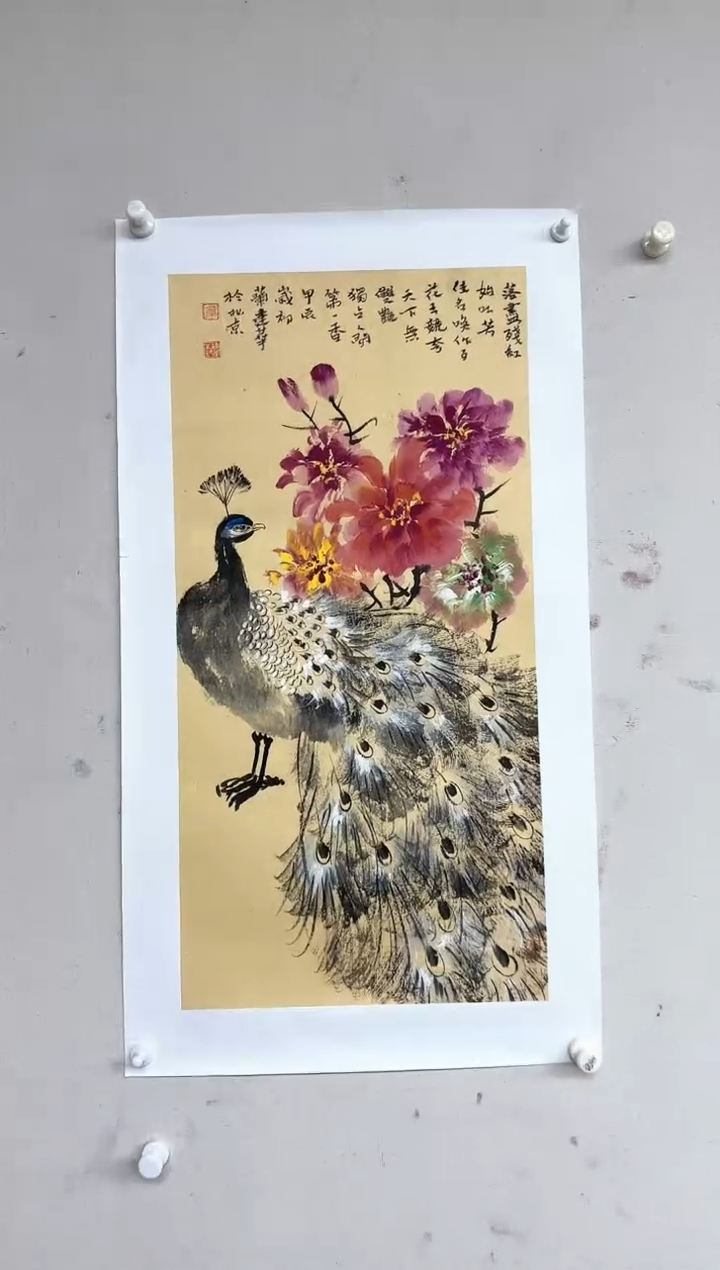 落盡殘紅
始吐芳
佳名喚作百
花王競夸
天下無
雙艷
獨立人間
第一香
甲辰
歲初
蘭建華
於北京